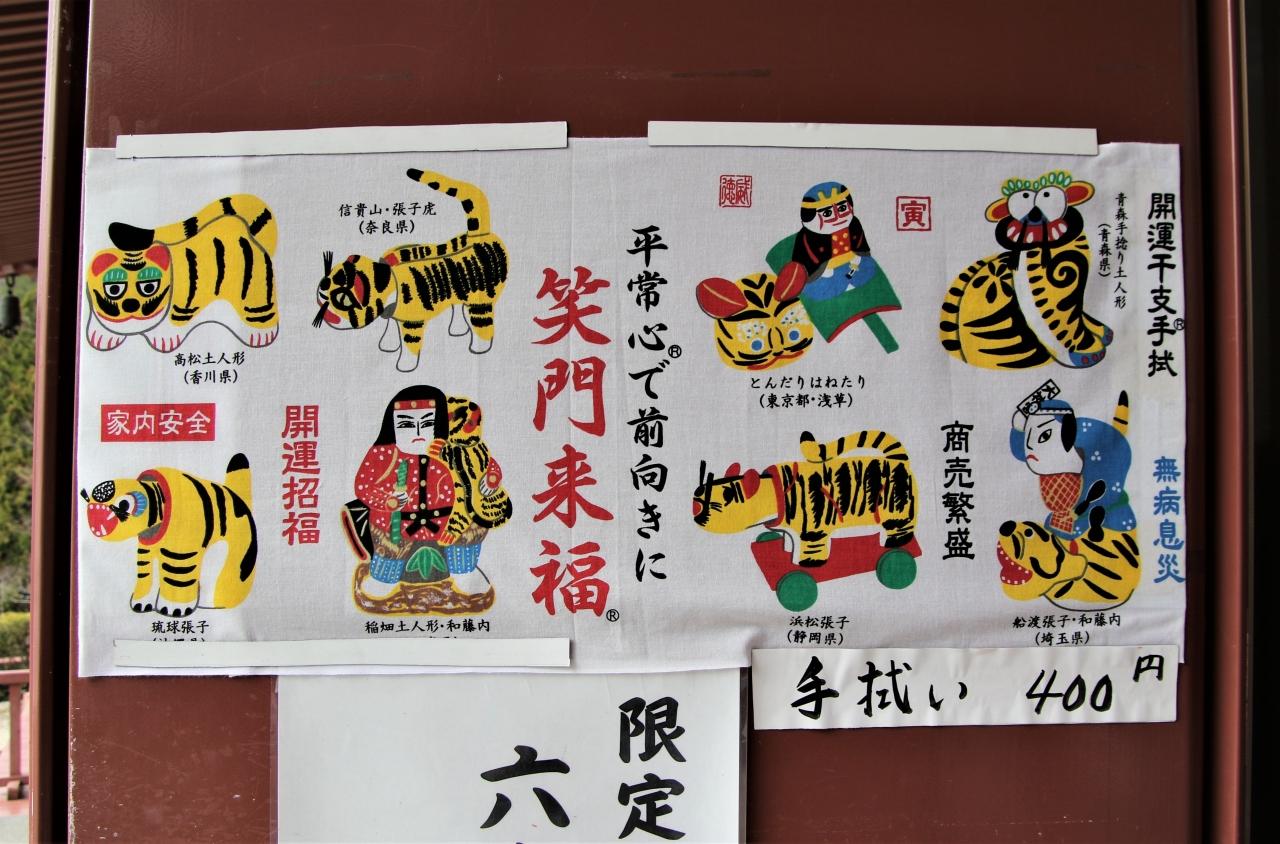 開運干支手拭®
青森手捻り土人形
(青森県)
寅
とんだりはねたり
(東京都・浅草)
無病息災
船渡張子・和藤内
(埼玉県)
商売繁盛
浜松張子
(静岡県)
平常心®で前向きに
笑門来福®
信貴山・張子虎
(奈良県)
高松土人形
(香川県)
家内安全
開運招福
稲畑土人形・和藤内
琉球張子
手拭い 400円
限定
六